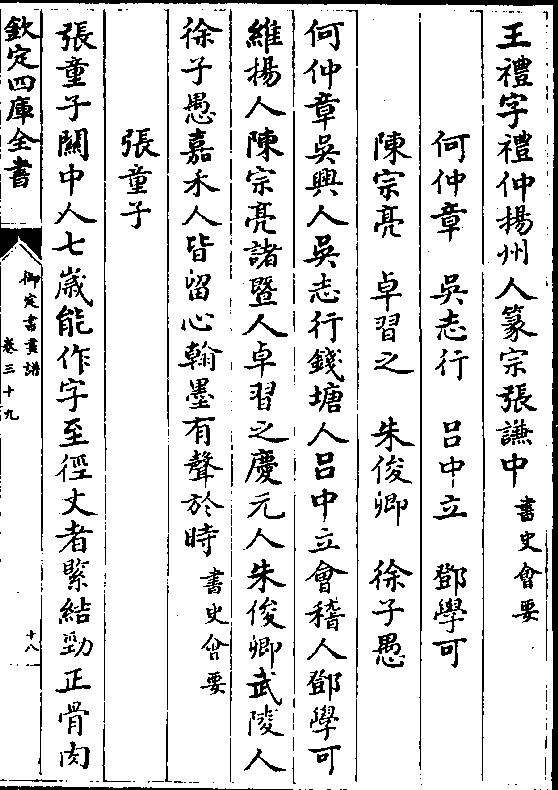 王禮字禮仲揚州人篆宗張謙中書史會要
何仲章 吳志行 吕中立 鄧學可
陳宗亮 卓習之 朱俊卿 徐子愚
何仲章吳興人吳志行錢塘人吕中立會稽人鄧學可
維揚人陳宗亮諸暨人卓習之慶元人朱俊卿武陵人
徐子愚嘉禾人皆留心翰墨有聲於時書史會要
張童子
張童子關中人七歲能作字至徑丈者緊結勁正骨肉
欽定四庫全書
御定書畫譜
卷三十九
十八